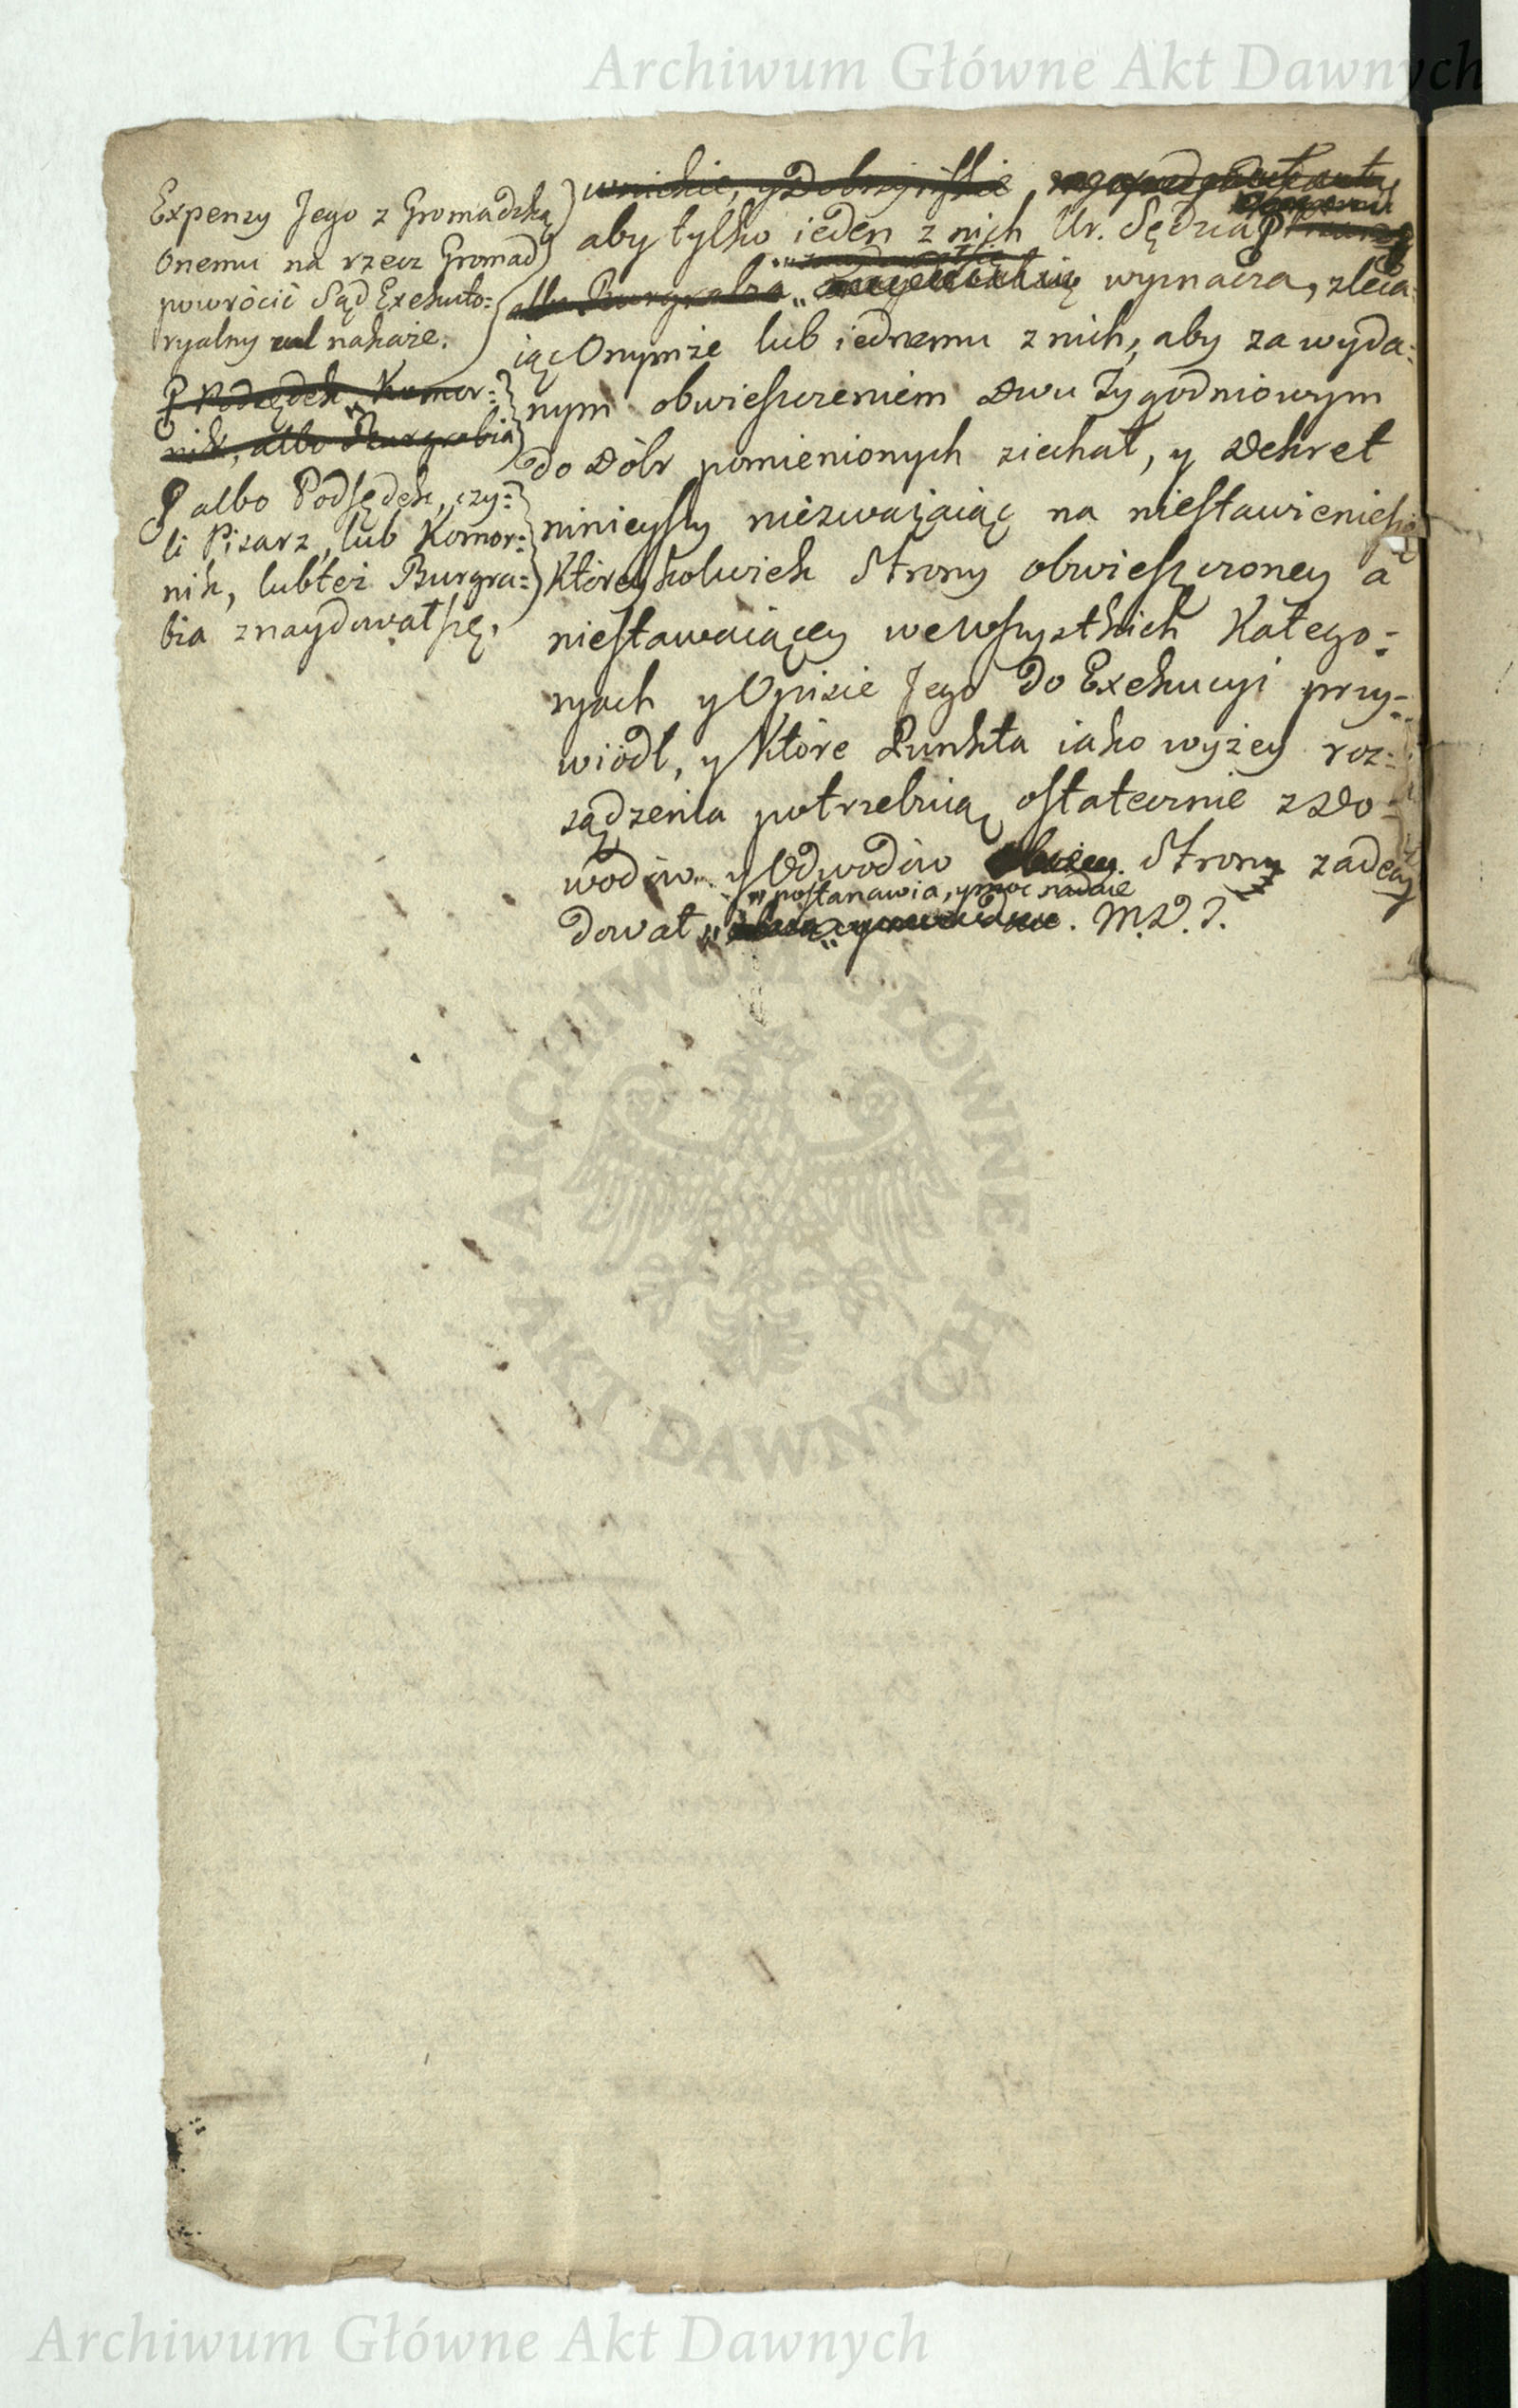 Archiwum Główne Akt Dawnych
Expensy Jego z Gromadzką
Onemu na rzecz Gromad
powrócić Sąd Exekuto=
ryalny nakaże.
Podsędek, Komor=
nik, albo Burgrabia
albo Podsędek, czy=
li Pisarz, lub Komor=
nik, lubteż Burgra=
bia znaydowałsię.
wnickie, y Dobrzyńskie,
aby tylko ieden z nich Ur. Sędzia
albo Burgrabia wyznacza, zleca=
iąc Onymże lub iednemu z nich, aby za wyda=
nym obwieszczeniem Dwu Tygodniowym
do Dóbr pomienionych ziechał, y Dekret
ninieyszy niezważaiąc na niestawieniesię
Któreykolwiek Strony obwieszczoney a
niestawaiącey wewszystkich Katego=
ryach y Opisie Jego do Exekucyi przy=
wiódł, y Które Punkta iako wyżey roz=
sądzenia potrzebuią ostatecznie z Do=
wodów y Odwodów Strony zadecy
postanawia, y moc nadaie
dował . M.D.J.
ARCHIWUM GŁÓWNE
AKT DAWNYCH
Archiwum Główne Akt Dawnych